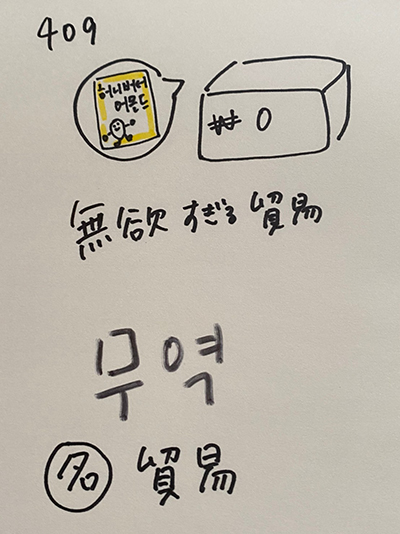 409
허니버터
어몬드
₩ 0
無欲すぎる貿易
무역
名 貿易